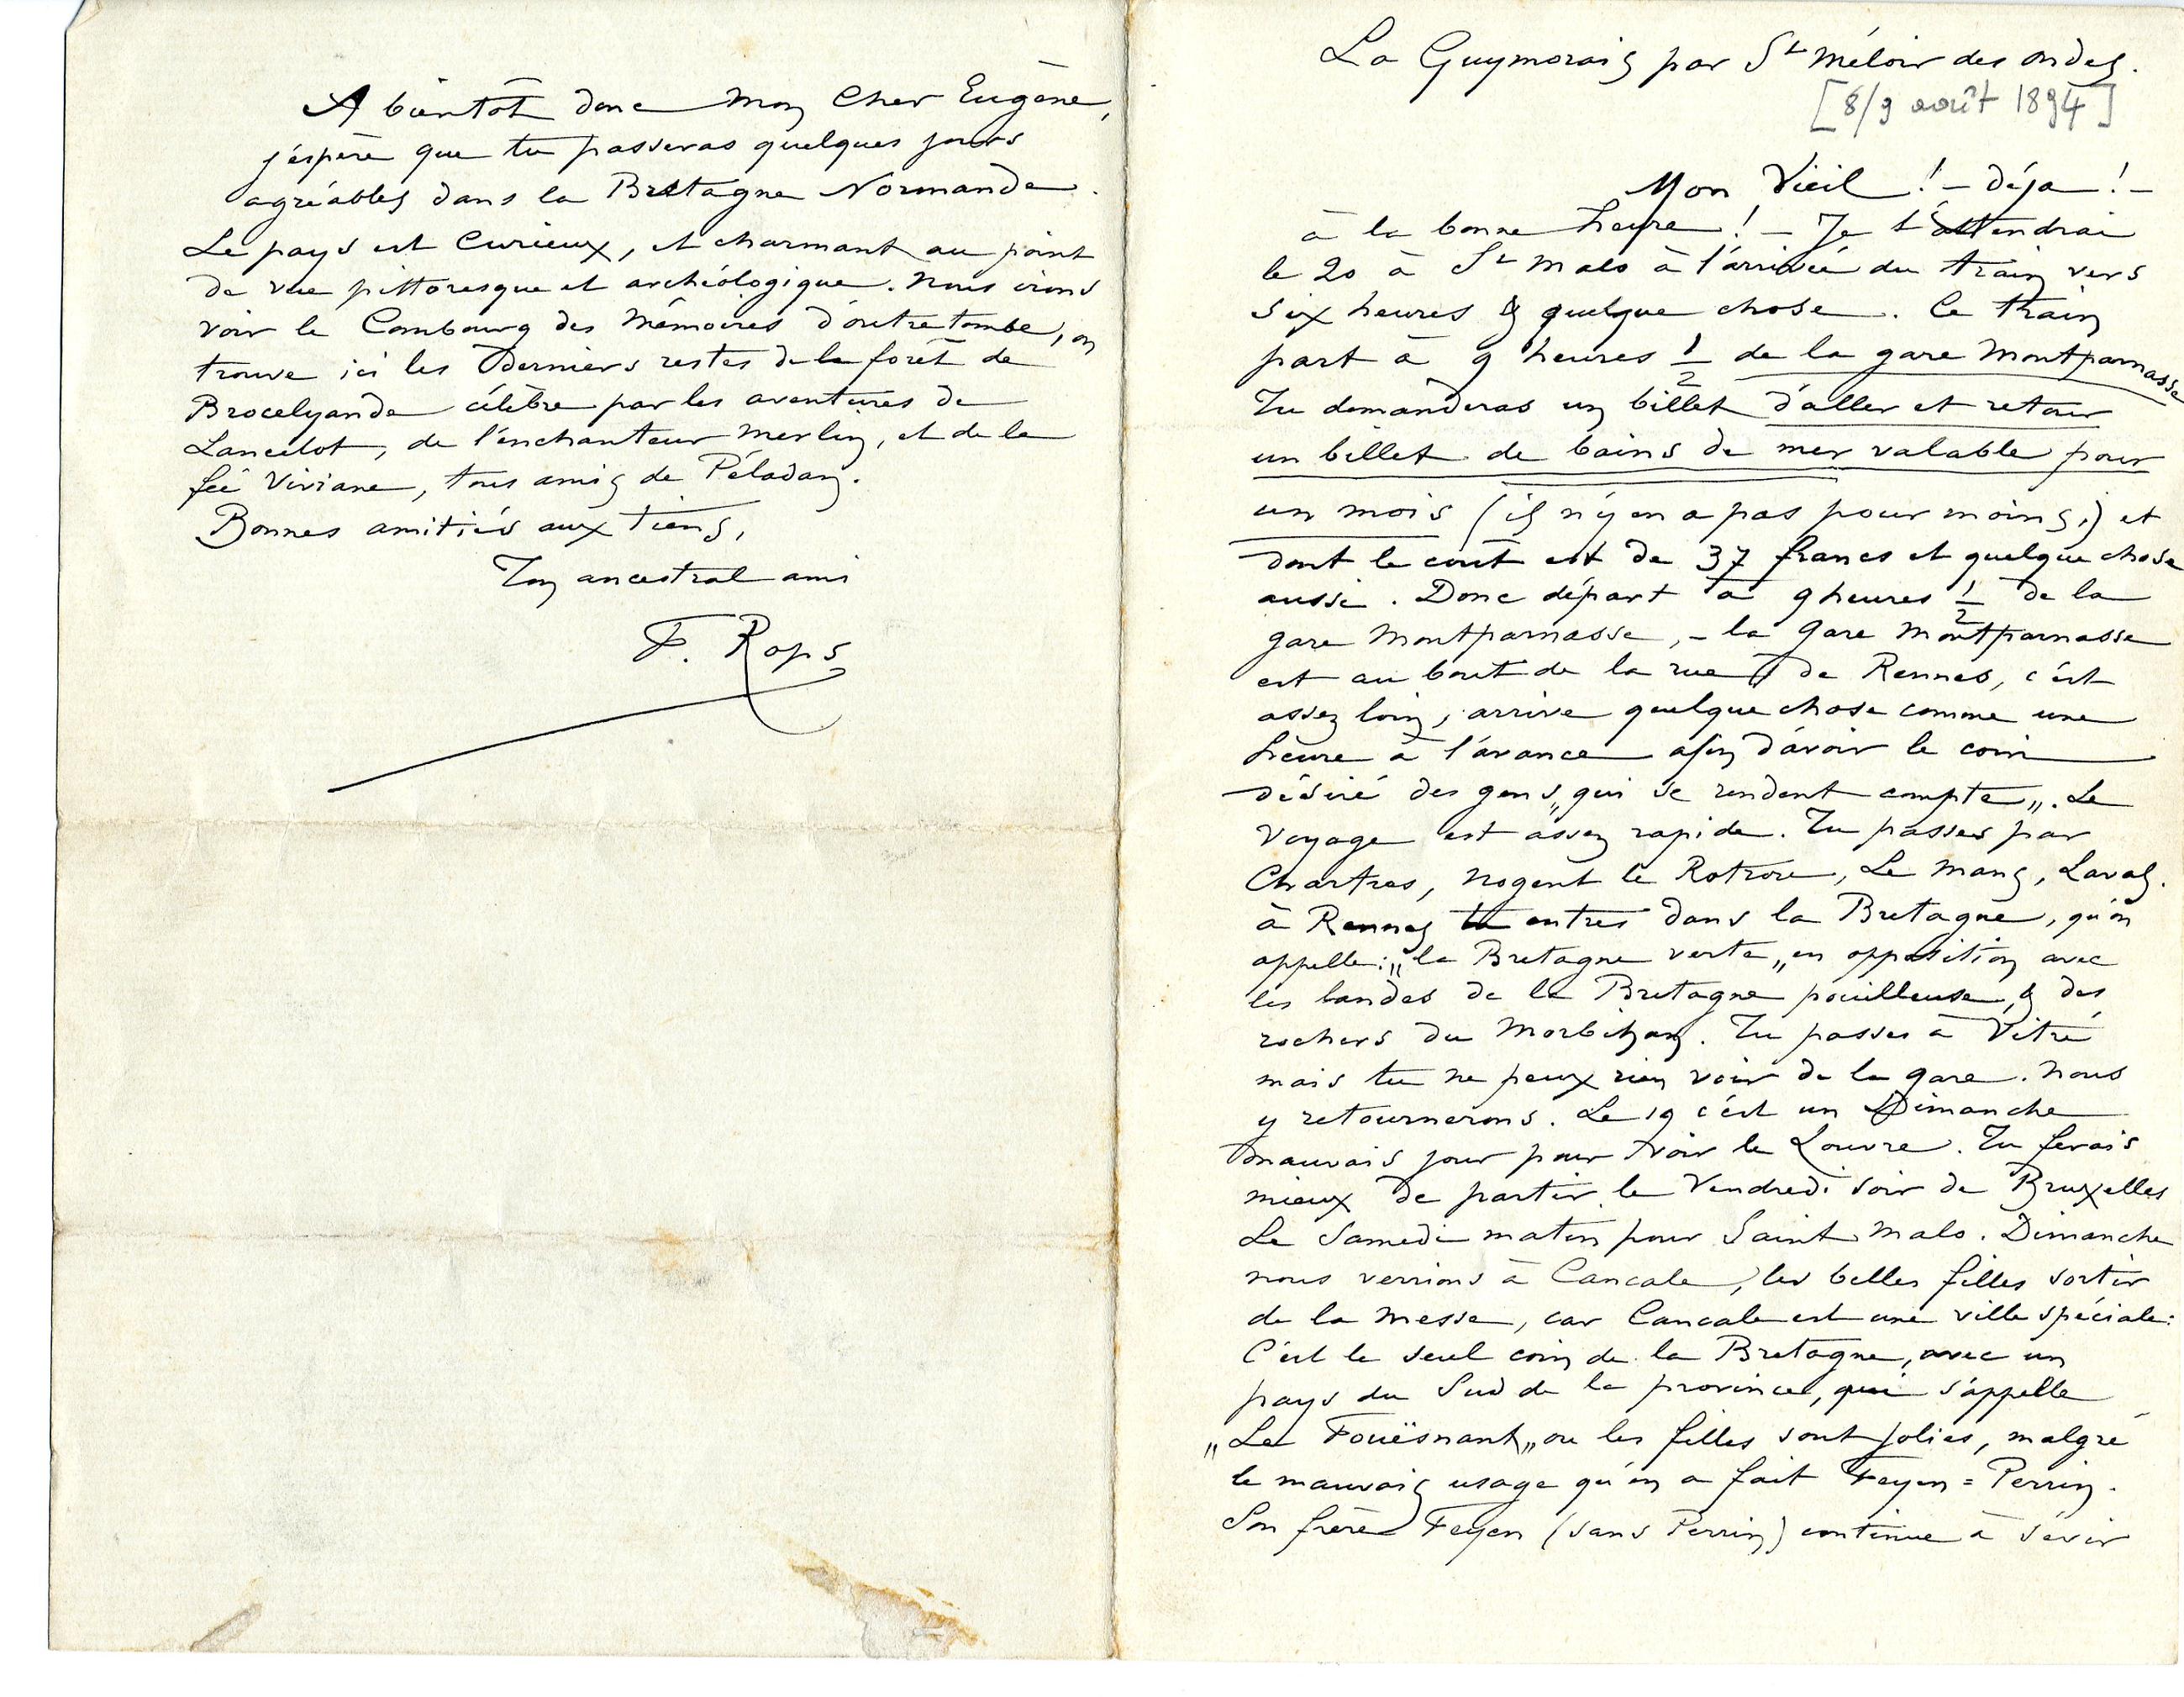 La Guymorais par St Méloir des ondes.
[8/9 août 1894]
Mon Vieil ! – Déja ! –
à la bonne heure ! – Je t'attendrai
le 20 à St Malo à l'arrivée du train vers
six heures & quelque chose. Ce train
part à 9 heures 1/2 de la gare Montparnasse
Tu demanderas un billet d'aller et retour
un billet de bains de mer valable pour
un mois (il n'y en a pas pour moins,) et
dont le coût est de 37 francs et quelque chose
aussi. Donc départ à 9 heures 1/2 de la
gare Montparnasse, – la Gare Montparnasse
est au bout de la rue de Rennes, c'est
assez loin, arrive quelque chose comme une
heure à l'avance afin d'avoir le coin
désiré des gens „qui se rendent compte„. Le
Voyage est assez rapide. Tu passes par
Chartres, Nogent le Rotrou, Le Mans, Laval.
à Rennes tu entres dans la Bretagne, qu'on
appelle: „la Bretagne verte„ en opposition avec
les landes de la Bretagne pouilleuse, & des
rochers du Morbihan. Tu passes à Vitré
mais tu ne peux rien voir de la gare. Nous
y retournerons. Le 19 c'est un Dimanche
mauvais jour pour voir le Louvre. Tu ferais
mieux de partir le Vendredi soir de Bruxelles
Le Samedi matin pour Saint Malo. Dimanche
nous verrions à Cancale, les belles filles sortir
de la Messe, car Cancale est une ville spéciale:
C'est le seul coin de la Bretagne, avec un
pays du Sud de la province, qui s'appelle
„Le Fouësnant„ ou les filles sont jolies, malgré
le mauvais usage qu'en a fait Feyen=Perrin.
Son frère Feyen (sans Perrin) continue à sévir
A bientôt donc Mon Cher Eugène,
j'espère que tu passeras quelques jours
agréables dans la Bretagne Normande.
Le pays est curieux, et charmant au point
de vue pittoresque et archéologique. Nous irons
voir le Combourg des Mémoires d'outre tombe, on
trouve ici les Derniers restes de la forêt de
Brocelyande célèbre par les aventures de
Lancelot, de l'enchanteur Merlin, et de la
fée Viviane, tous amis de Péladan.
Bonnes amitiés aux tiens,
Ton ancestral ami
F. Rops